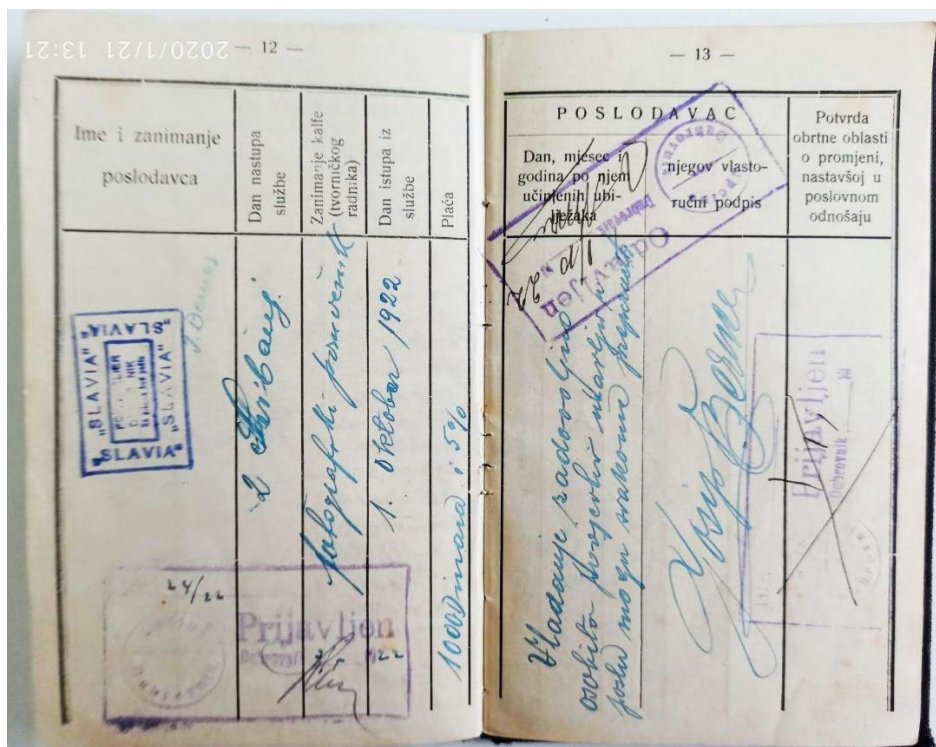 2020/1/21 13:21
— 12 —
Ime i zanimanje
poslodavca
Dan nastupa
službe
Zanimanje kalfe
(tvorničkog
radnika)
Dan istupa iz
službe
Plaća
"SLAVIA"
"SLAVIA"
"SLAVIA"
"SLAVIA"
"SLAVIA"
"SLAVIA"
2
fotografski pomoćnik
1. oktobar 1922
1000 dinara i 5%
24/22
Prijavljen
22
— 13 —
POSLODAVAC
Dan, mjesec i
godina po njem
učinjenih ubi-
lježaka
njegov vlasto-
ručni podpis
Potvrda
obrtne oblasti
o promjeni,
nastavšoj u
poslovnom
odnošaju
Odjavljen
Dubrovnik
1/10 22
Vladanje zadovoljno
osobito
poslu mogu svakome
Josip Berner
Prijavljen
Dubrovnik